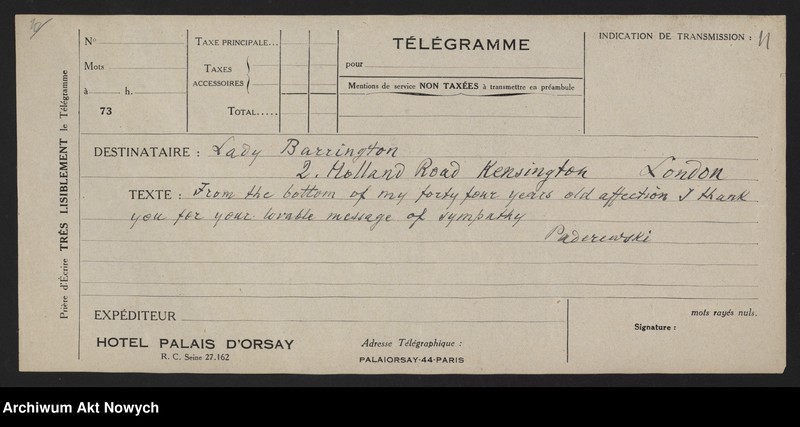 Nº
Mots
à h.
73
TAXE PRINCIPALE...
TAXES
ACCESSOIRES
TOTAL.....
TÉLÉGRAMME
pour
Mentions de service NON TAXÉES à transmettre en préambule
INDICATION DE TRANSMISSION : 11
Prière d'Écrire TRÈS LISIBLEMENT le Télégramme
DESTINATAIRE : Lady Barrington
2. Holland Road Kensington London
TEXTE : From the bottom of my forty four years old affection I thank
you for your lovable message of sympathy
Paderewski
EXPÉDITEUR
mots rayés nuls.
Signature :
HOTEL PALAIS D'ORSAY
R. C. Seine 27.162
Adresse Télégraphique :
PALAIORSAY-44-PARIS
Archiwum Akt Nowych